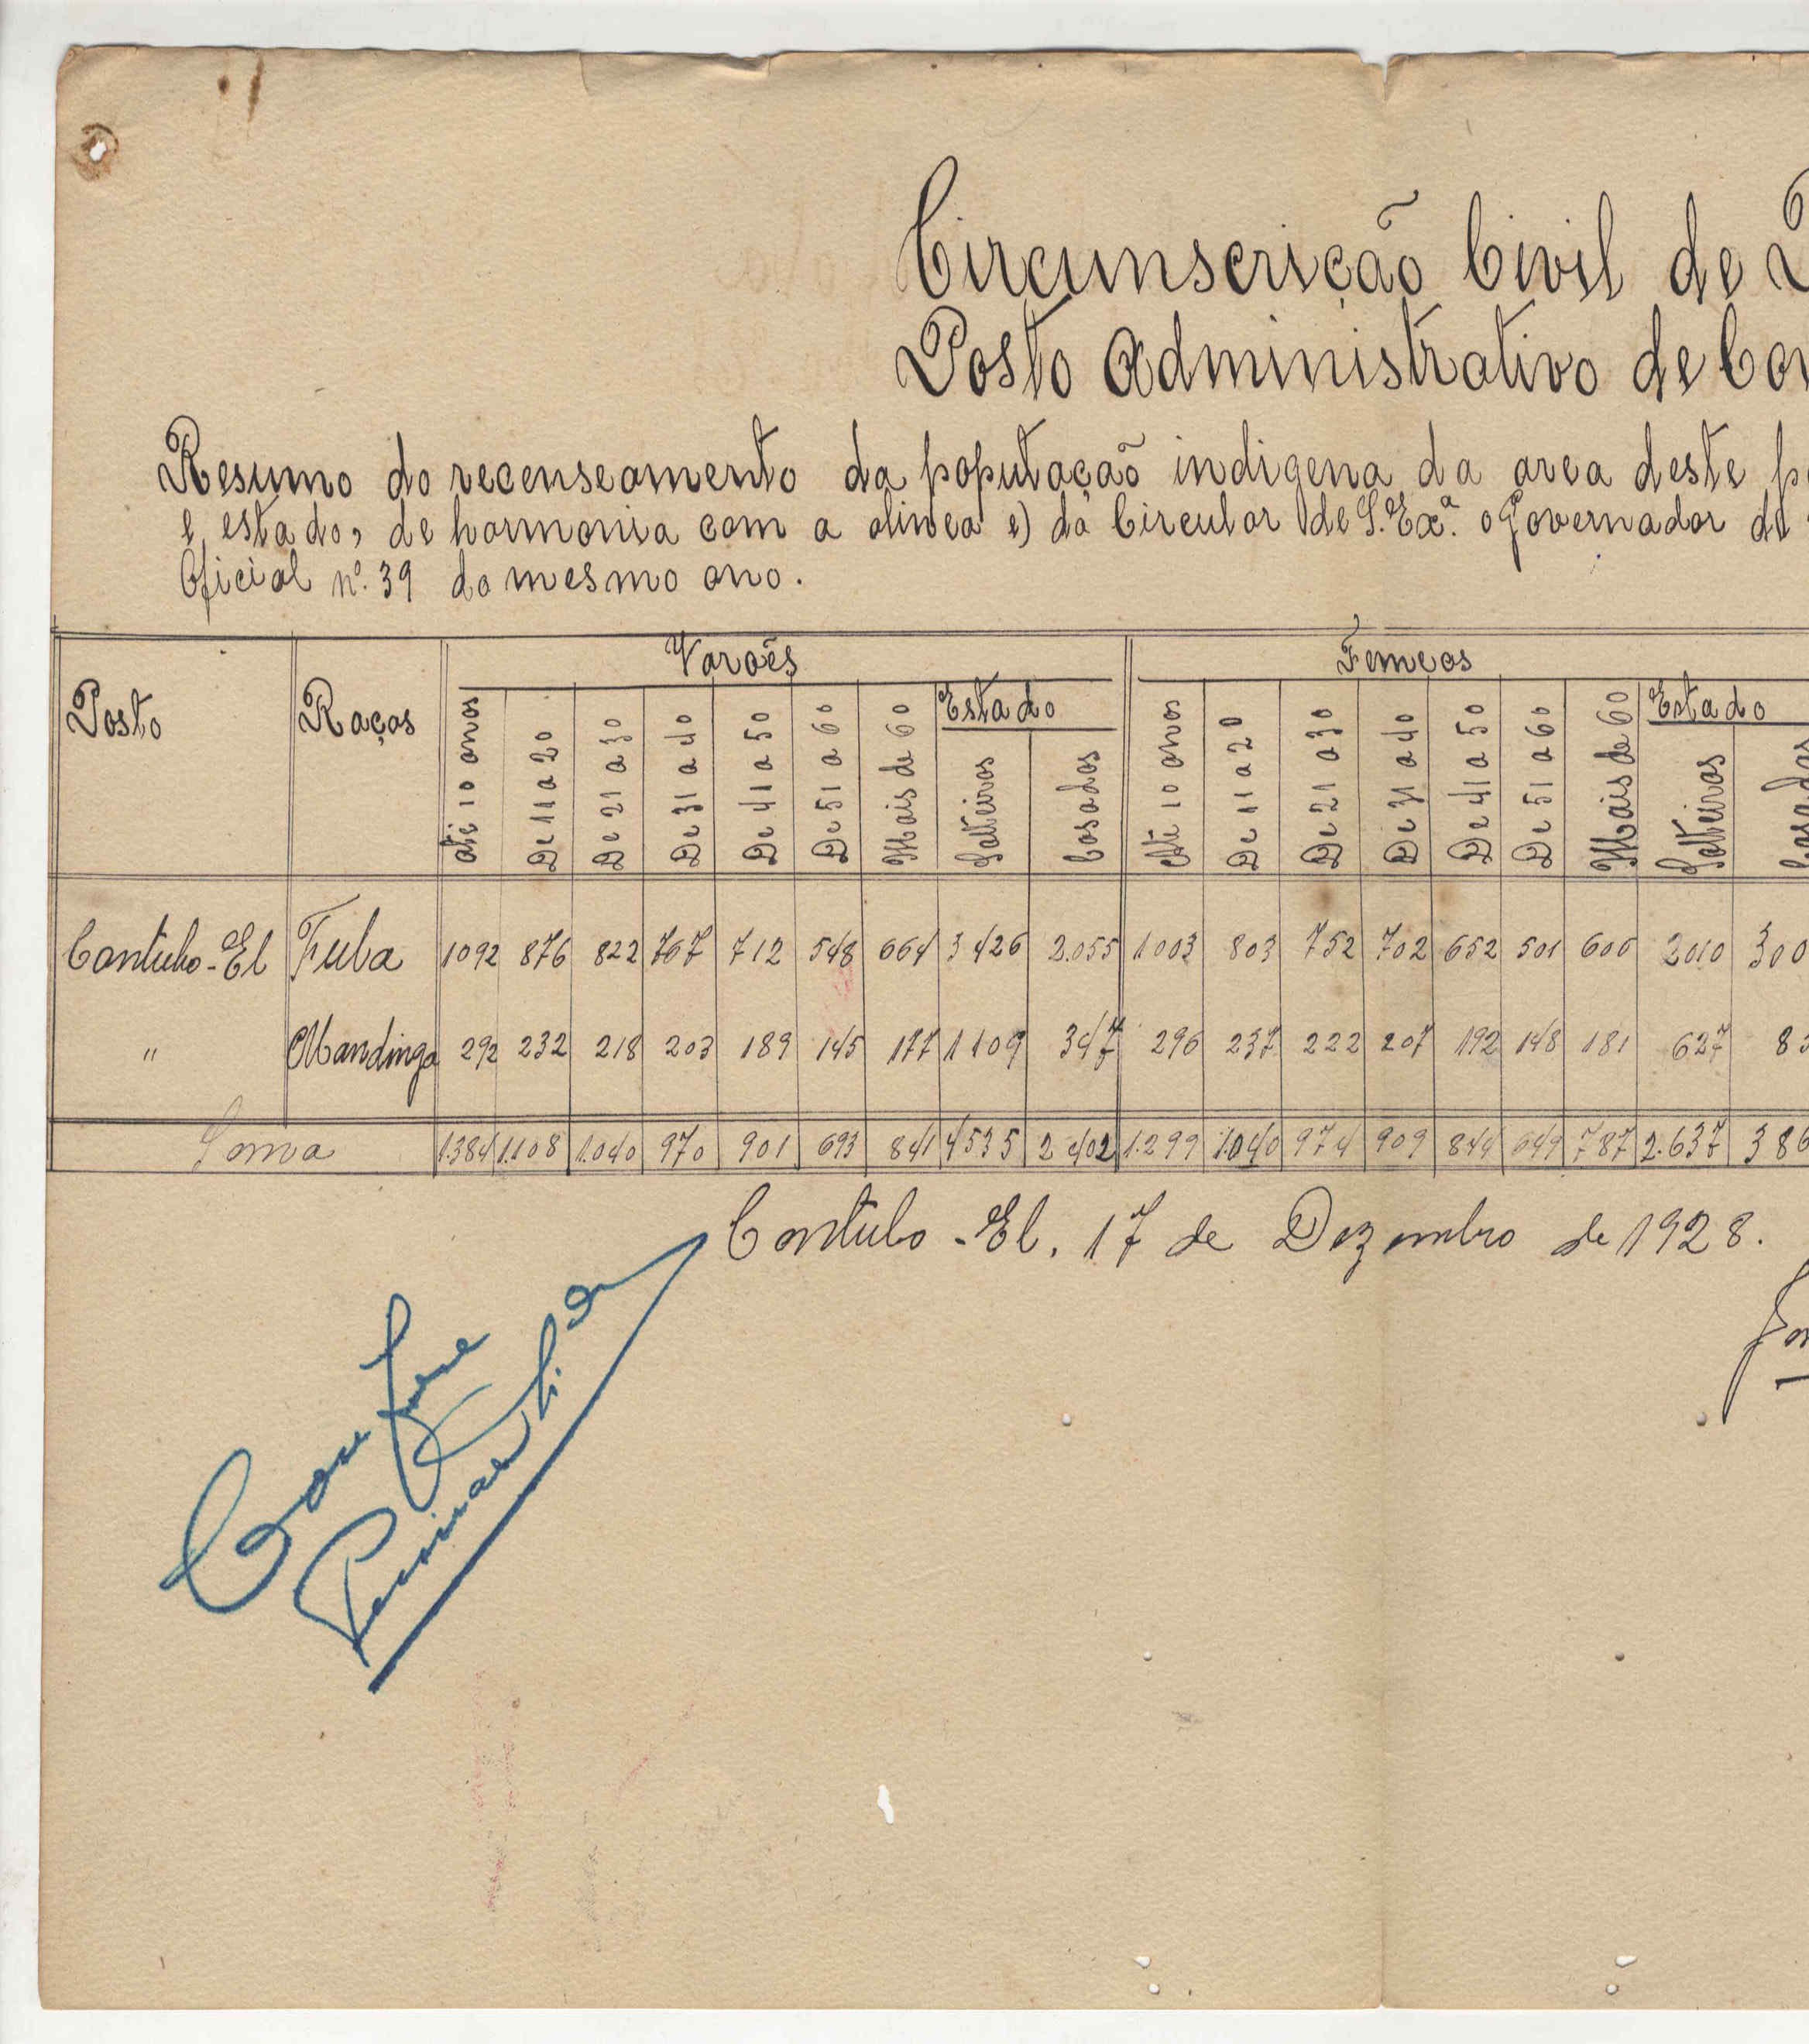 Circunscrição Civil de
Posto Administrativo de
Resumo do recenseamento da população indigena da area deste
e estado, de harmonia com a alinea e) da Circular de S. Exª. o Governador de
Oficial nº. 39 do mesmo ano.
Varoẽs Femeas
Posto Raças Até 10 anos De 11 a 20 De 21 a 30 De 31 a 40 De 41 a 50 De 51 a 60 Mais de 60 Estado Até 10 anos De 11 a 20 De 21 a 30 De 31 a 40 De 41 a 50 De 51 a 60 Mais de 60 Estado
Solteiros Casados Solteiras Casadas
Contubo-El Fula 1092 876 822 767 712 548 664 3426 2.055 1003 803 752 702 652 501 606 2010 300
" Mandinga 292 232 218 203 189 145 177 1109 347 296 237 222 207 192 148 181 627 8
Soma 1.384 1.108 1.040 970 901 693 841 4535 2402 1.299 1.040 974 909 844 649 787 2.637 386
Contubo-El, 17 de Dezembro de 1928.